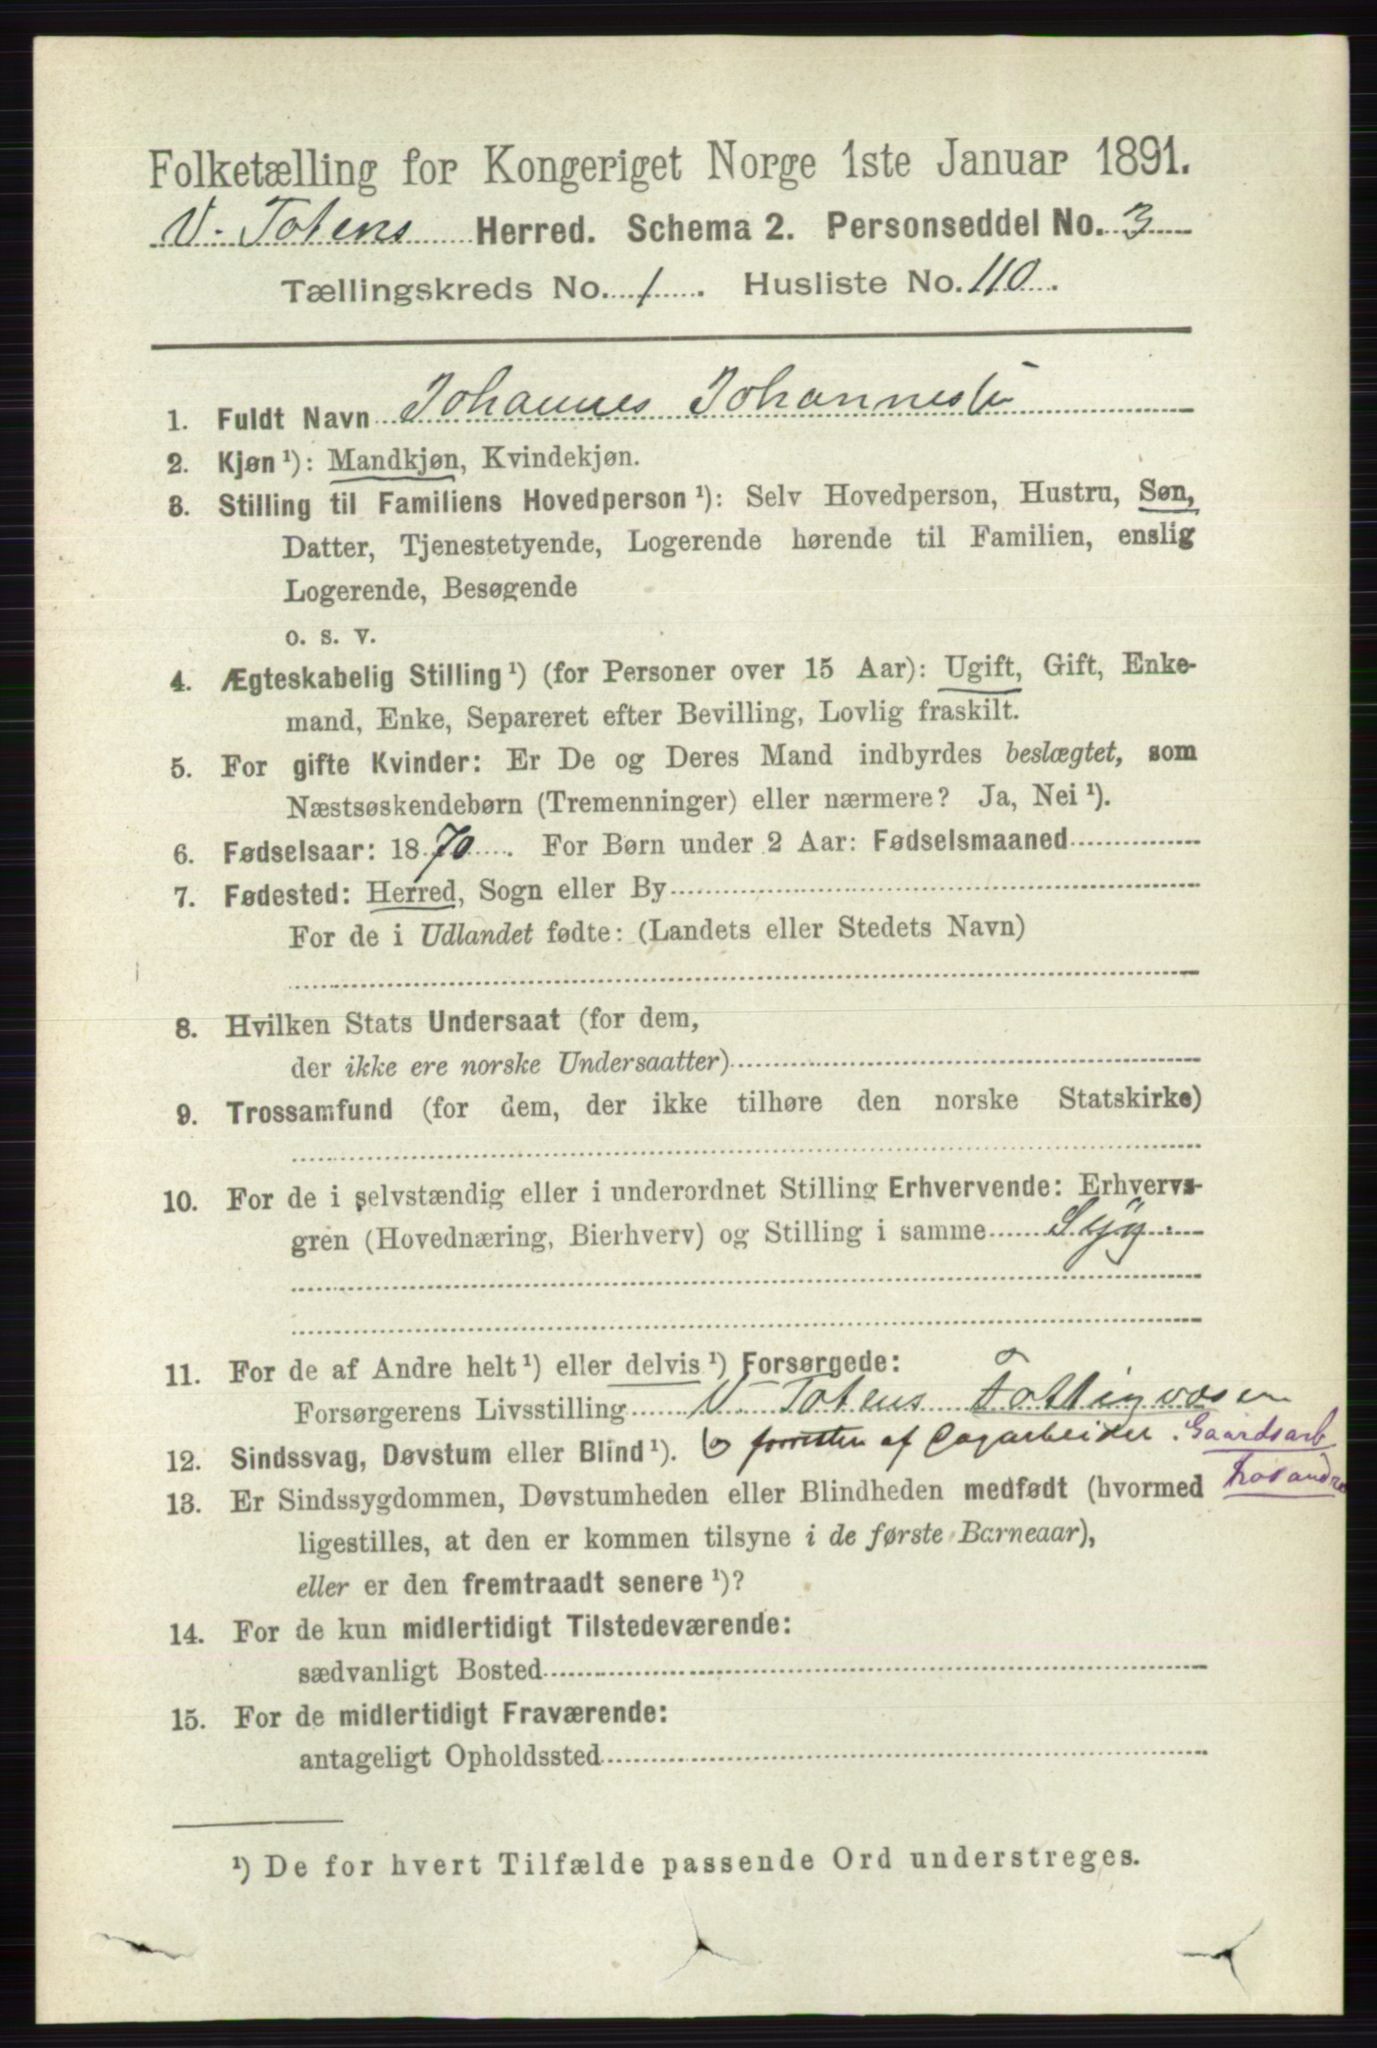 Folketælling for Kongeriget Norge 1ste Januar 1891.
V. Totens Herred. Schema 2. Personseddel No. 3
Tællingskreds No. 1. Husliste No. 110.
1. Fuldt Navn Johannes Johanness
2. Kjøn ¹): Mandkjøn, Kvindekjøn.
3. Stilling til Familiens Hovedperson ¹): Selv Hovedperson, Hustru, Søn,
Datter, Tjenestetyende, Logerende hørende til Familien, enslig
Logerende, Besøgende
o. s. v.
4. Ægteskabelig Stilling ¹) (for Personer over 15 Aar): Ugift, Gift, Enke-
mand, Enke, Separeret efter Bevilling, Lovlig fraskilt.
5. For gifte Kvinder: Er De og Deres Mand indbyrdes beslægtet, som
Næstsøskendebørn (Tremenninger) eller nærmere? Ja, Nei ¹).
6. Fødselsaar: 1870. For Børn under 2 Aar: Fødselsmaaned
7. Fødested: Herred, Sogn eller By
For de i Udlandet fødte: (Landets eller Stedets Navn)
8. Hvilken Stats Undersaat (for dem,
der ikke ere norske Undersaatter)
9. Trossamfund (for dem, der ikke tilhøre den norske Statskirke)
10. For de i selvstændig eller i underordnet Stilling Erhvervende: Erhvervs-
gren (Hovednæring, Bierhverv) og Stilling i samme Syg.
11. For de af Andre helt ¹) eller delvis ¹) Forsørgede:
Forsørgerens Livsstilling V. Totens Fattigvæsen
12. Sindssvag, Døvstum eller Blind ¹). o forresten af Dagarbeider. Gaardsarb
13. Er Sindssygdommen, Døvstumheden eller Blindheden medfødt (hvormed
ligestilles, at den er kommen tilsyne i de første Barneaar),
eller er den fremtraadt senere ¹)?
14. For de kun midlertidigt Tilstedeværende:
sædvanligt Bosted
15. For de midlertidigt Fraværende:
antageligt Opholdssted
¹) De for hvert Tilfælde passende Ord understreges.